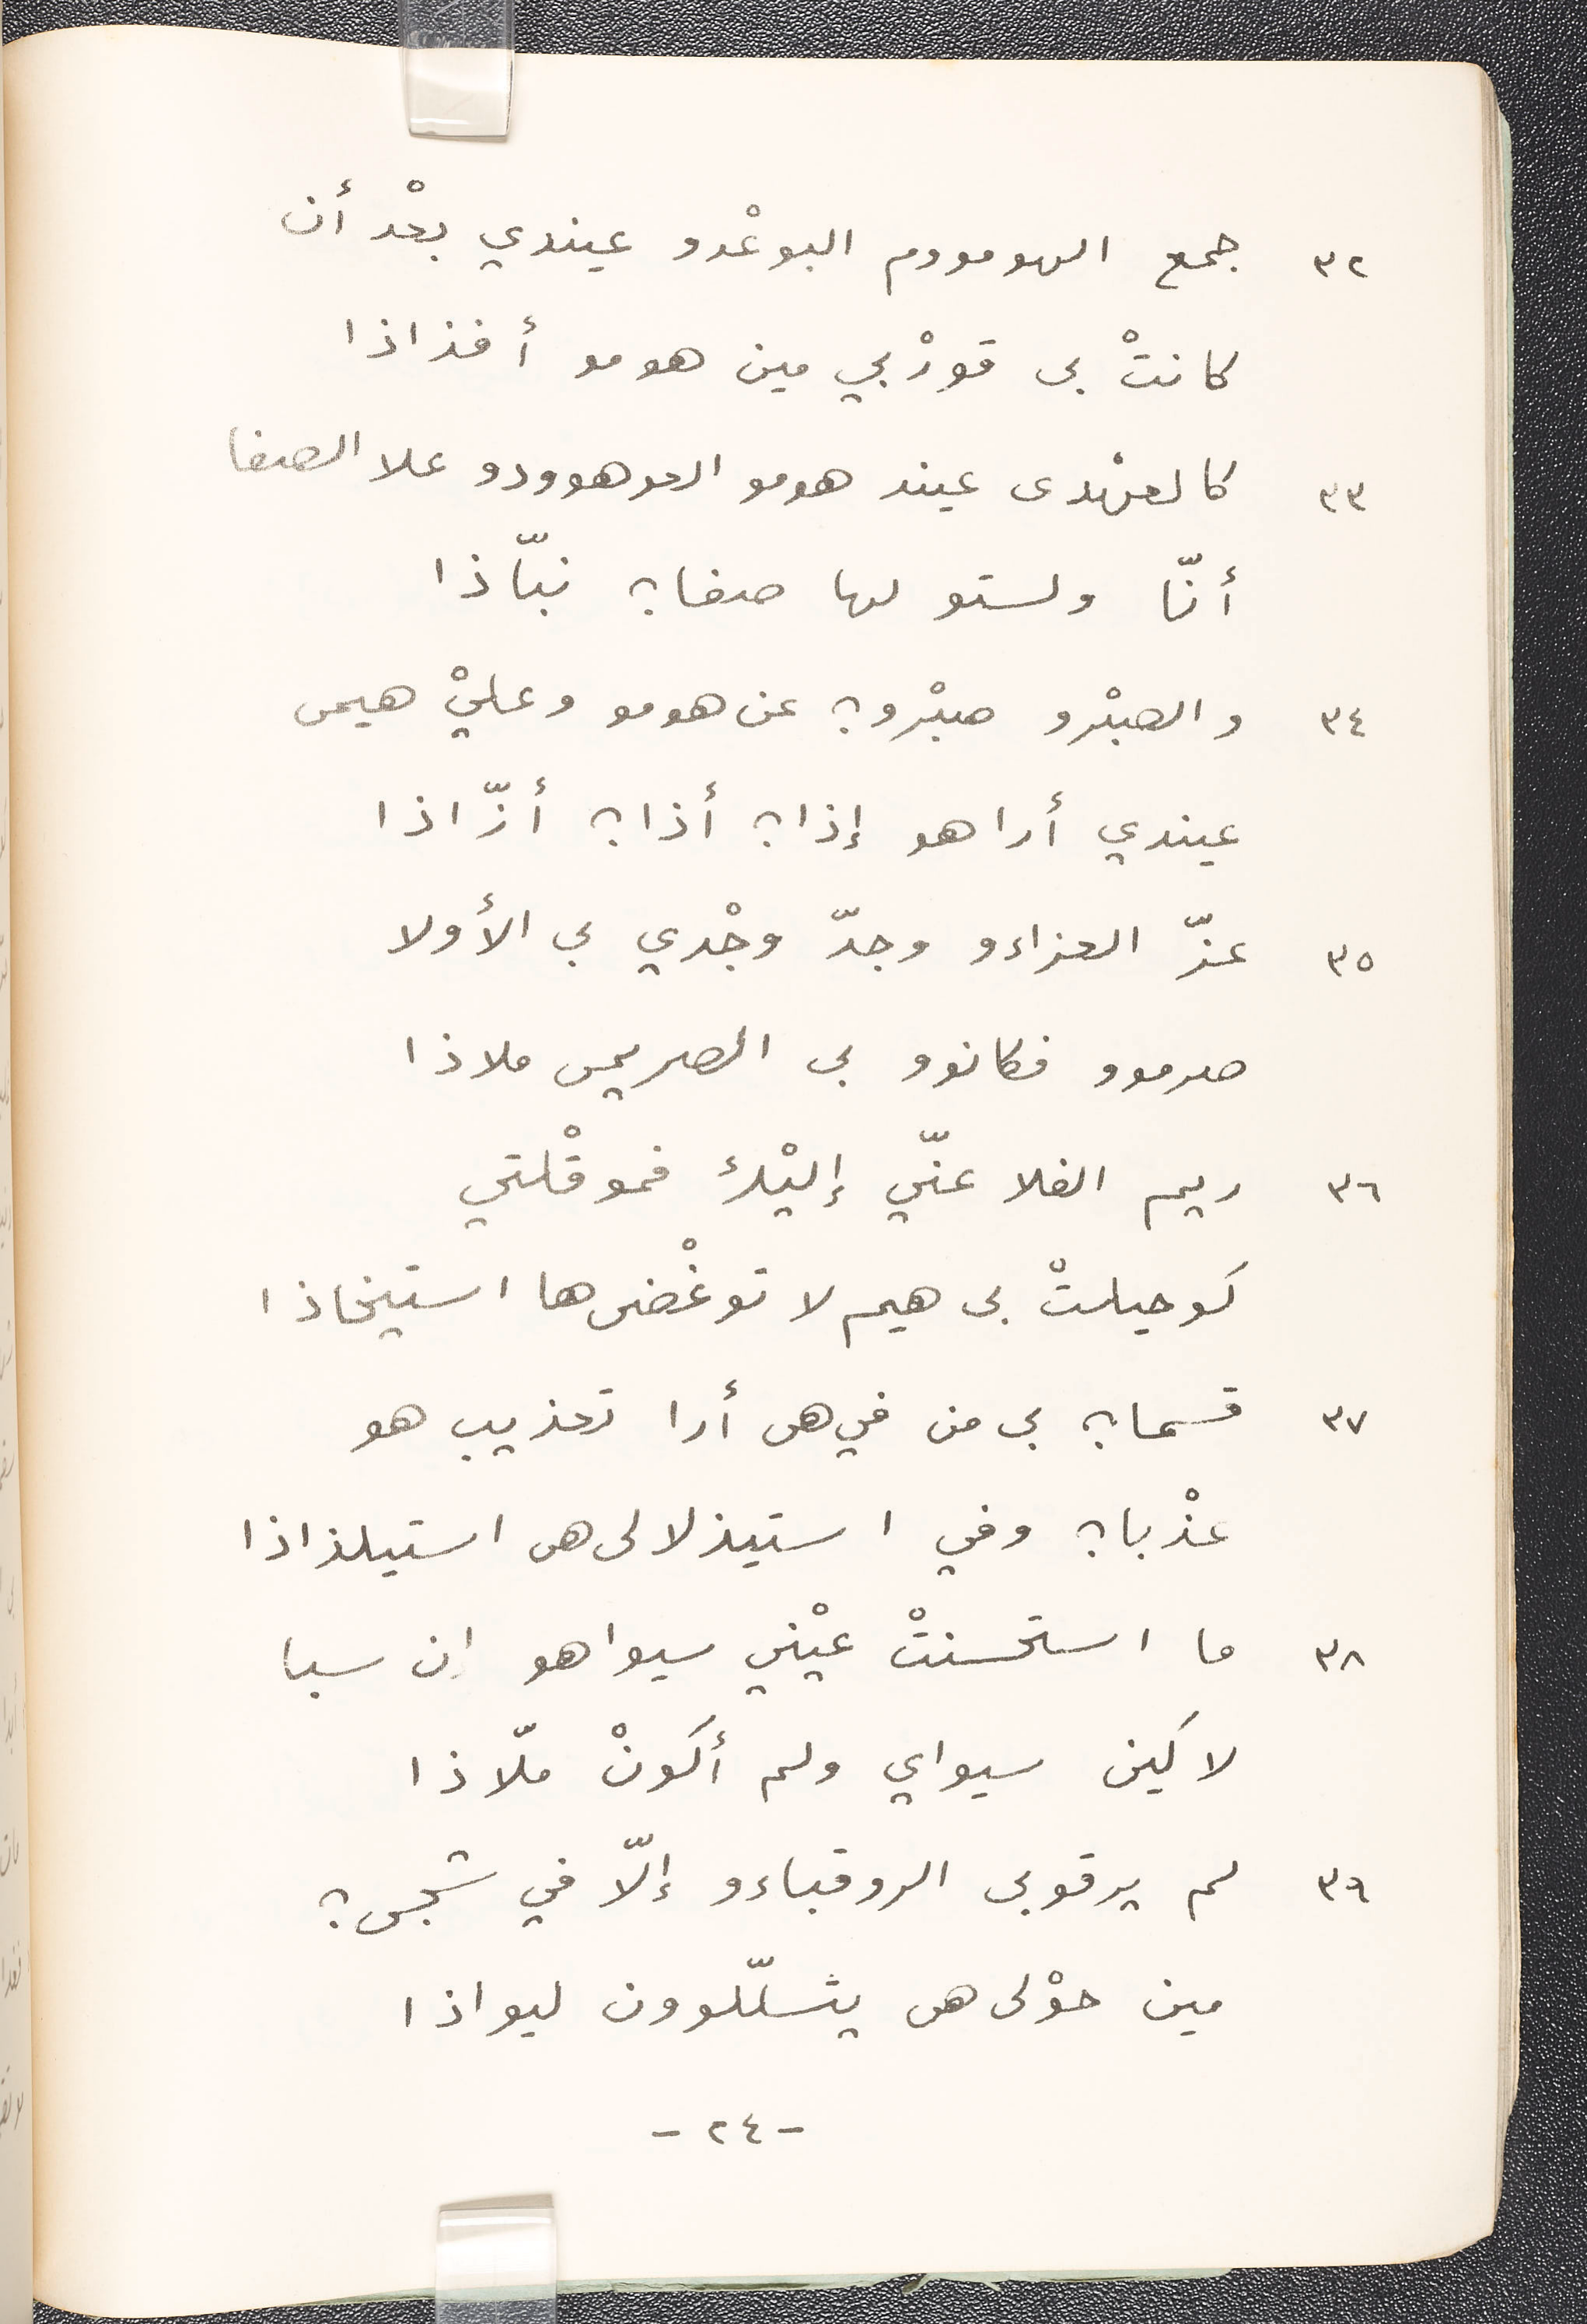 ٣٢ جمع الهوموم البوعْدو عيندي بعْد أن
كانتْ بى قورْبي مين هومو أفذاذا
٣٣ كالعهْدى عيند هومو العوهوودو علا الصفا
أنّا ولستو لها صفا؟ نبّاذا
٣٤ والصبْرو صبْرو؟ عن هومو وعليْ هيمى
عيندي أراهو إذا؟ أذا؟ أزّاذا
٣٥ عزّ العزاءو وجدّ وجْدي بى الأولا
صرموو فكانوو بى الصريمى ملاذا
٣٦ ريم الفلا عنّي إليْك فموقْلتي
كوحيلتْ بى هيم لا توغْضى ها استيخاذا
٣٧ قسما؟ بى من في هى أرا تعذيب هو
عذْبا؟ وفي استيذلالى هى استيلذاذا
٣٨ ما استحسنتْ عيْني سيواهو إن سبا
لاكين سيواي ولم أكونْ ملّاذا
٣٩ لم يرقوبى الروقباءو إلّا في شجى؟
مين حوْلى هى يتسلّلوون ليواذا
- ٢٤ -